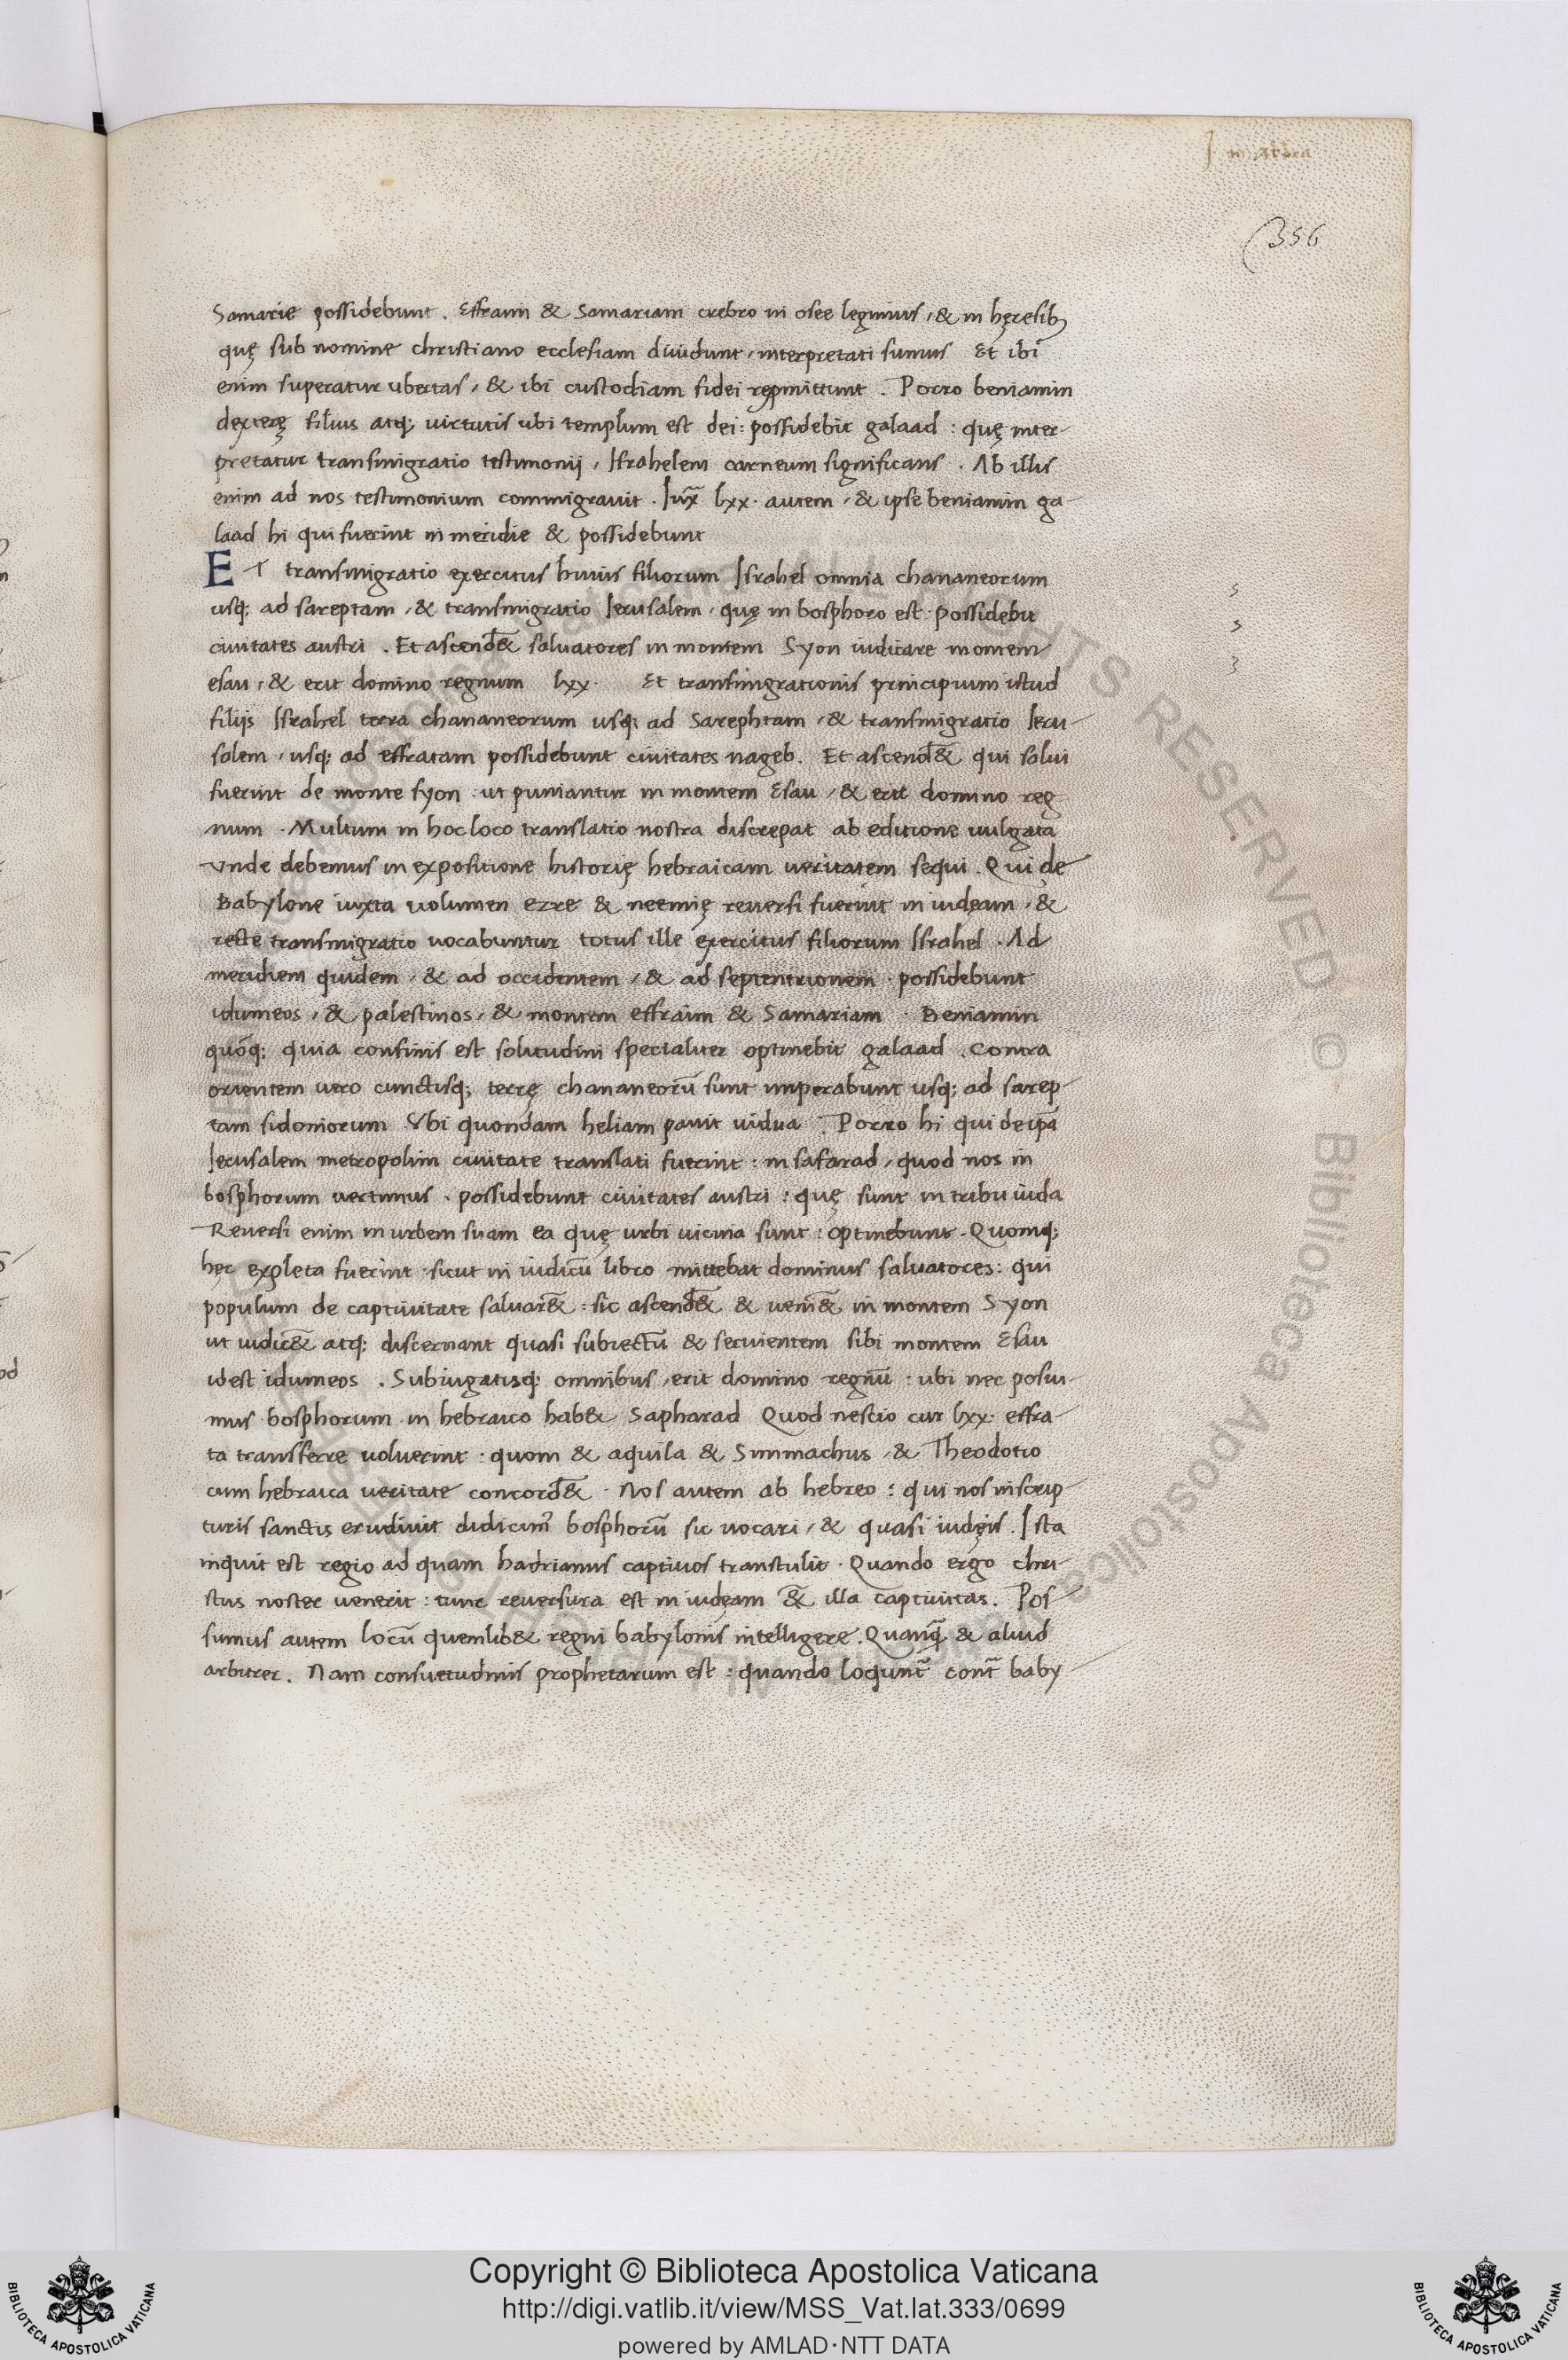 In abdia
356
Samarie possidebunt . Effraim & Samariam crebro in osee legimus , & in hęresib;
quę sub nomine christiano ecclesiam diuidunt , interpretati sumus Et ibi
enim superatur ubertas , & ibi custodiam fidei repmittunt . Porro beniamin
dexterę filius atq; uirtutis ubi templum est dei : possidebit galaad : quę inter-
pretatur transmigratio testimonij , Israhelem carneum significans . Ab illis
enim ad nos testimonium commigrauit . Iux̄ lxx . autem , & ipse beniamin ga-
laad hi qui fuerint in meridie & possidebunt
ET transmigratio exercitus huius filiorum Israhel omnia chananeorum
usq; ad sareptam , & transmigratio Ierusalem , quę in bosphoro est . possidebit
ciuitates austri . Et ascend&̄ saluatores in montem Syon iudicare montem
esau , & erit domino regnum lxx . Et transmigrationis principium istud
filijs Israhel terra chananeorum usq; ad Sarephtam , & transmigratio Ieru-
salem , usq; ad effratam possidebunt ciuitates nageb . Et ascend&̄ qui salui
fuerint de monte syon : ut puniantur in montem Esau , & erit domino reg
num . Multum in hoc loco translatio nostra discrepat ab editione uulgata
Vnde debemus in expositione historię hebraicam ueritatem sequi . Qui de
Babylone iuxta uolumen ezre & neemię reuersi fuerint in iudęam , &
recte transmigratio uocabuntur totus ille exercitus filiorum Israhel . Ad
meridiem quidem , & ad occidentem , & ad septentrionem . possidebunt
idumeos , & palestinos , & montem effraim & Samariam . Beniamin
quoq; quia confinis est solitudini specialiter optinebit galaad . Contra
orientem uero cunctisq; terrę chananeorū sunt imperabunt usq; ad sarep-
tam sidoniorum Vbi quondam heliam pauit uidua . Porro hi qui de ip̄a
Ierusalem metropolim ciuitate translati fuerint : in safarad , quod nos in
bosphorum uertimus . possidebunt ciuitates austri : quę sunt in tribu iuda
Reuersi enim in urbem suam ea quę urbi uicina sunt : optinebunt . Quomq;
hęc expleta fuerint . sicut in iudicū libro mittebat dominus saluatores : qui
populum de captiuitate saluar&̄ : sic ascend&̄ & ueni&̄ in montem Syon
ut iudic&̄ atq; discernant quasi subiectū & seruientem sibi montem Esau
idest idumeos . Subiugatisq; omnibus , erit domino regnū : ubi nec posui-
mus bosphorum in hebraico hab& Sapharad Quod nescio cur lxx . effra-
ta transferre uoluerint : quom & aquila & Simmachus , & Theodotio
cum hebraica ueritate concord&̄ . Nos autem ab hebreo : qui nos in scrip-
turis sanctis erudiuit didicim᾿ bosphorū sic uocari , & quasi iudęis . Ista
inquit est regio ad quam hadrianus captiuos transtulit . Quando ergo chri-
stus noster uenerit : tunc reuersura est in iudęam &̄ illa captiuitas . Pos
sumus autem locū quemlib& regni babylonis intelligere . Quanq̄ & aliud
arbitrer . Nam consuetudinis prophetarum est : quando loqunt̄ cont̄ baby-
Copyright © Biblioteca Apostolica Vaticana
http://digi.vatlib.it/view/MSS_Vat.lat.333/0699
powered by AMLAD·NTT DATA
BIBLIOTECA APOSTOLICA VATICANA
BIBLIOTECA APOSTOLICA VATICANA